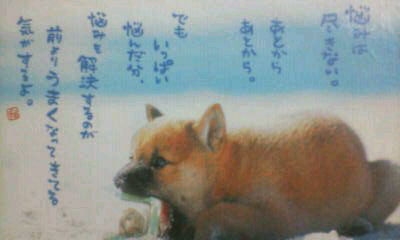 悩みは
尽きない。
あとから
あとから。
でも
いっぱい
悩んだ分、
悩みを解決するのが
前よりうまくなってきてる
気がするよ。